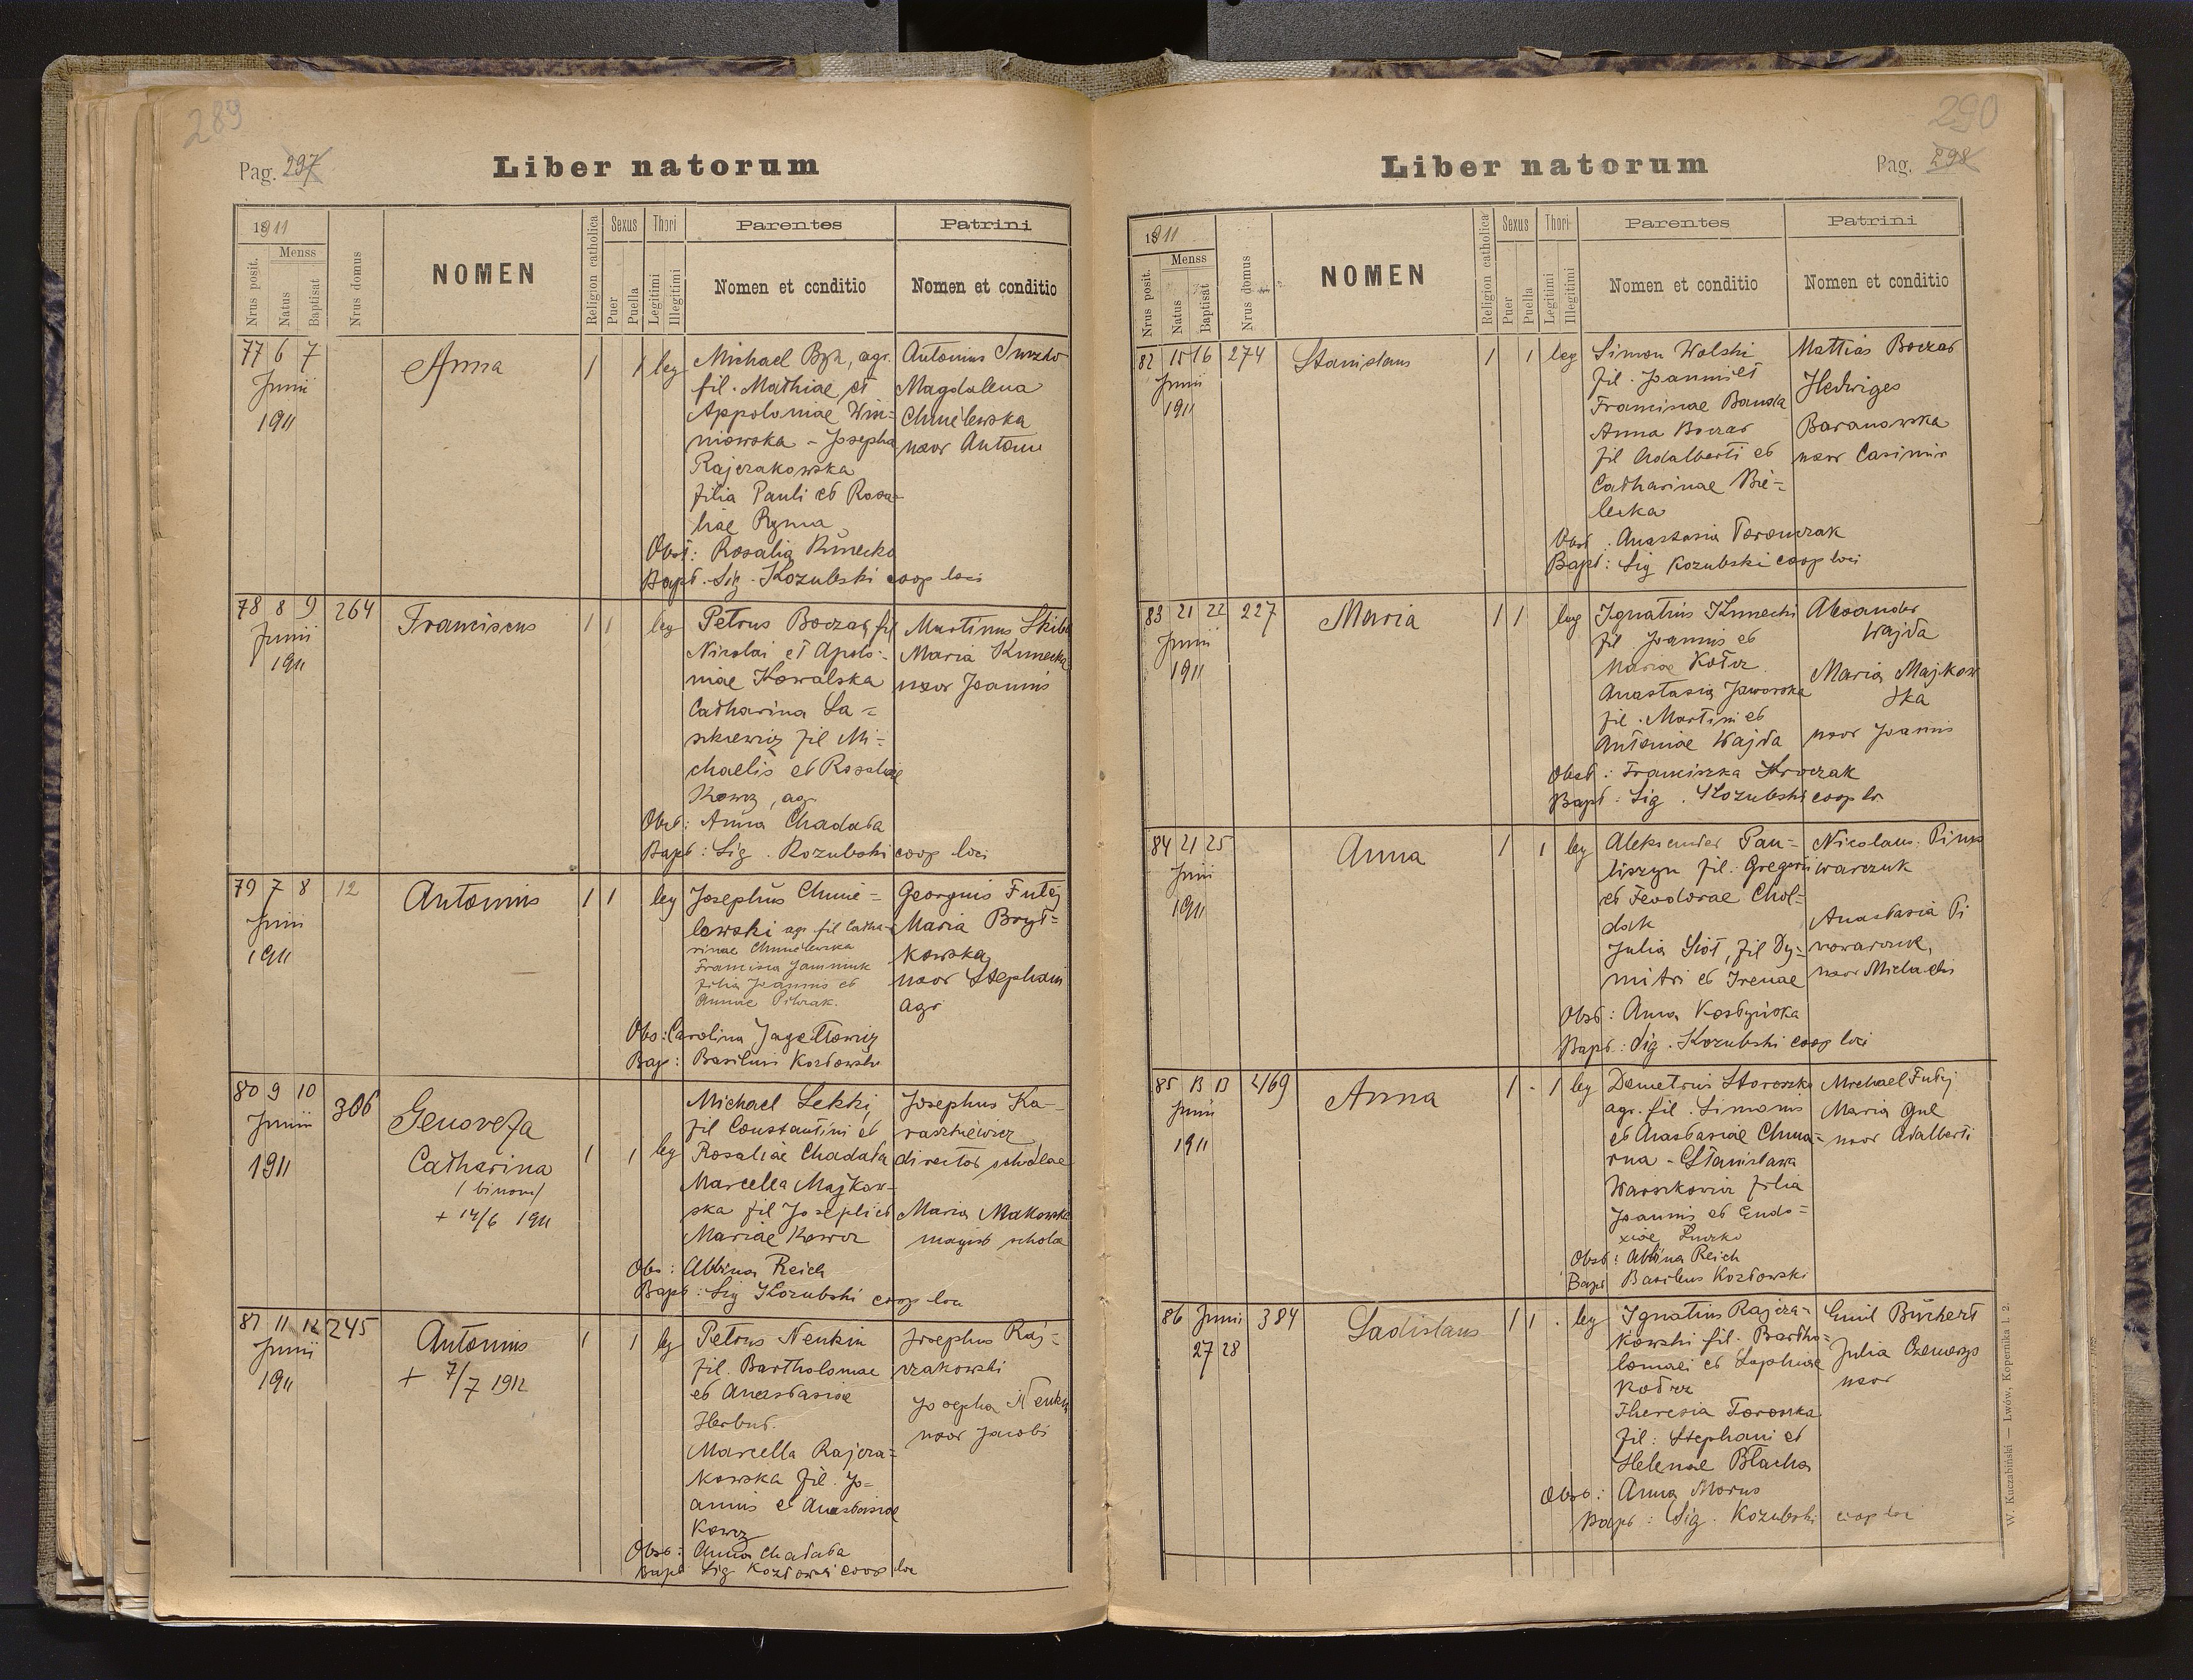 289
Pag. 297
Liber natorum
1911
Menss
Nrus posit.
Natus
Baptisat
Nrus domus
NOMEN
Religion catholica
Sexus
Puer
Puella
Thori
Legitimi
Illegitimi
Parentes
Nomen et conditio
Patrini
Nomen et conditio
77 6 7
Junii
1911
Anna
1 1 leg
Michael agr.
fil. Mathiae et
Appoloniae Win=
niowska - Josepha
Rajczakowska
filia Pauli et Rosa=
liae Ryma
Obst: Rosalia Kunecka
Bapt. Sig. Kozubski coop loci
Antonius
Magdalena
Chmielewska
uxor Antoni
78 8 9 264
Junii
1911
Franciscus
1 1 leg
Petrus Boczar fil
Nicolai et Apolo=
niae Kowalska
Catharina La=
szkiewicz fil Mi=
chaelis et Rosaliae
Kowcz, agr
Obst: Anna Chadała
Bapt: Sig. Kozubski coop loci
Martinus Skiba
Maria Kunecka
uxor Joannis
79 7 8 12
Junii
1911
Antonius
1 1 leg
Josephus Chmie=
lewski agr fil Catha=
rinae Chmielewska
Francisca Janniuk
filia Joannis et
Annae
Obs: Carolina Jagełłowicz
Bap: Basilius Kozłowski
Georgius Futej
Maria Bryt=
kowska,
uxor Stephani
agr
80 9 10 306
Junii
1911
Genovefa
Catharina
/ binova /
+ 14/6 1911
1 1 leg
Michael Sekki,
fil Constantini et
Rosaliae Chadała
Marcella Majkow-
ska fil Josephi et
Mariae Kowcz
Obs: Albina Reich
Bapt: Sig Kozubski coop loci
Josephus Ka-
raszkiewicz
director scholae
Maria Makowska
magist scholae
81 11 12 245
Junii
1911
Antonius
+ 7/7 1912
1 1 leg
Petrus Nenkin
fil. Bartholomae
et Anastasiae
Herbut.
Marcella Rajcza=
kowska fil. Jo=
annis et Anastasiae
Kowcz
Obst: Anna Chadała
Bapt Sig coop loci
Josephus Raj=
czakowski
Josepha Nenkin
uxor Jacobi
290
Liber natorum
Pag. 298
1911
Menss
Nrus posit.
Natus
Baptisat
Nrus domus
NOMEN
Religion catholica
Sexus
Puer
Puella
Thori
Legitimi
Illegitimi
Parentes
Nomen et conditio
Patrini
Nomen et conditio
82 15 16 274
Junii
1911
Stanislaus
1 1 leg
Simon Wolski
fil. Joannis et
Francinae
Anna Boczar
fil Adalberti et
Catharinae Bie=
lecka
Obst. Anastasia Toronczak
Bapt: Sig Kozubski coop loci
Mattias Boczar
Hedwiges
Baranowska
uxor Casimir
83 21 22 227
Junii
1911
Maria
1 1 leg
Ignatius Kunecki
fil Joannis et
Mariae Kotcz
Anastasia Jaworska
fil. Martini et
Antoniae Wajda
Obst: Franciszka Kroczak
Bapt: Sig. Kozubski coop lo.
Alexander
Wajda
Maria Majkow
ska
uxor Joannis
84 21 25
Junii
1911
Anna
1 1 leg
Aleksander Pau=
liszyn fil. Gregorii
et Feodorae Choł=
dak
Julia Siot, fil Dy=
mitri et Irenae
Obst: Anna Kostyńska
Bapt: Sig. Kozubski coop loci
Nicolaus. Piwo
warczuk
Anastasia Pi
wowarczuk,
uxor Michaelis
85 13 13 469
Junii
1911
Anna
1 - 1 leg
Demetrius Storoszko
agr. fil. Simonis
et Anastasiae Chma=
rna - Stanisława
Waoszkowia filia
Joannis et Eudo=
xiae Suszko
Obst: Albina Reich
Bapt Basilius Kozłowski
Michael Futej
Maria Gul
uxor Adalberti
86 Junii 384
27 28
Ladislaus
1 1 . leg
Ignatius Rajcza=
kowski fil. Bartho=
lomaei et Sophiae
Kotcz
Theresia Toroszka
fil: Stephani et
Helenae Błacha
Obst: Anna Morus
Bapt: Sig. Kozubski coop loci
Emil Burchert
Julia
uxor
W. Kuczabiński — Lwów, Kopernika l. 2.